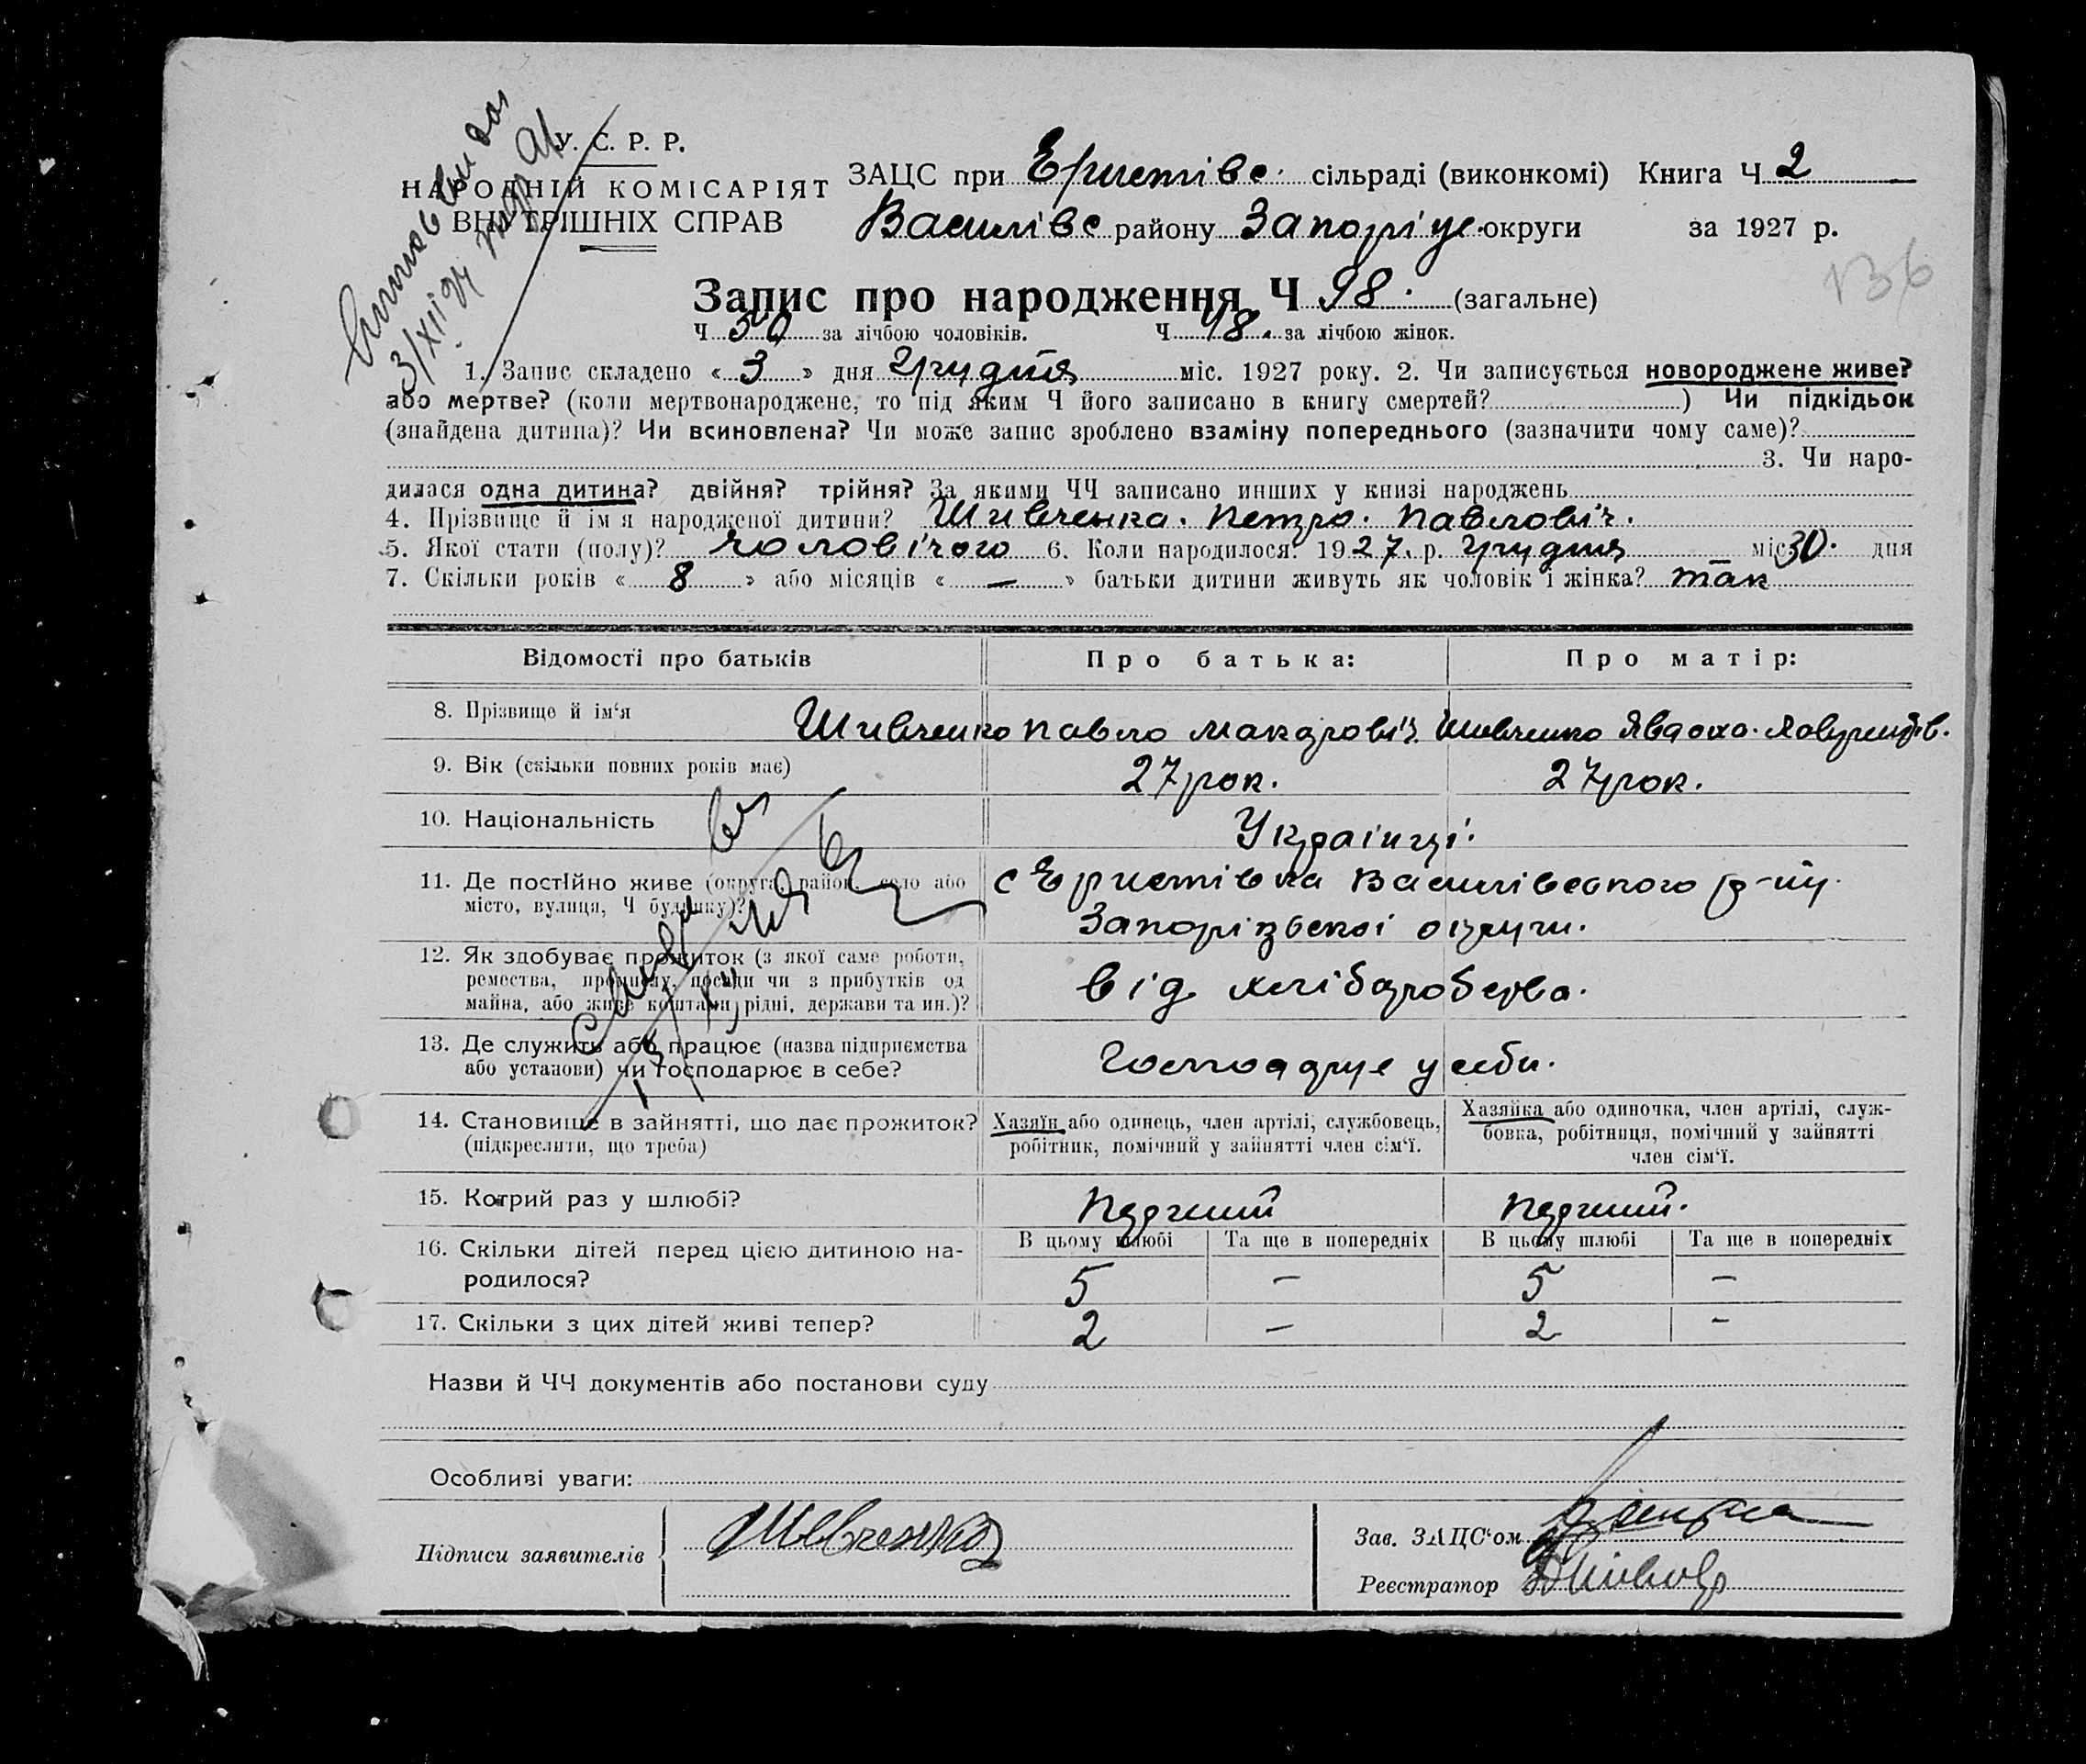 У. С. Р. Р.
НАРОДНІЙ КОМІСАРІЯТ
ВНУТРІШНІХ СПРАВ
ЗАЦС при Еристівс. сільраді (виконкомі) Книга Ч 2
Василівс району Запоріце. округи за 1927 р.
136
Запис про народження Ч 98. (загальне)
Ч 50 за лічбою чоловіків. Ч 48. за лічбою жінок.
3/XII
1. Запис складено « 3 » дня Грудня міс. 1927 року. 2. Чи записується новороджене живе?
або мертве? (коли мертвонароджене, то під яким Ч його записано в книгу смертей? ) Чи підкідьок
(знайдена дитина)? Чи всиновлена? Чи може запис зроблено взаміну попереднього (зазначити чому саме)?
3. Чи наро-
дилася одна дитина? двійня? трійня? За якими ЧЧ записано инших у книзі народжень
4. Прізвище й ім'я народженої дитини? Шивченка. Петро. Павловіч.
5. Якої стати (полу)? чоловічого 6. Коли народилося? 1927. р. Грудня міс 30. дня
7. Скільки років « 8 » або місяців « — » батьки дитини живуть як чоловік і жінка? так
Відомості про батьків Про батька: Про матір:
8. Прізвище й ім'я Шивченко Павло Макаровіч Шивченко Явдоха.
9. Вік (скільки повних років має) 27 рок. 27 рок.
10. Національність Українці.
11. Де постійно живе (округа, район, село або с Еристівка Василівського р-ну.
місто, вулиця, Ч будинку)? Запорізької округи.
12. Як здобуває прожиток (з якої саме роботи,
ремества, промислу, посади чи з прибутків од від хлібаробства.
майна, або живе коштами рідні, держави та ин.)?
13. Де служить або працює (назва підприємства Господарує у себи.
або установи) чи господарює в себе?
14. Становище в зайнятті, що дає прожиток? Хазяїн або одинець, член артілі, службовець, Хазяйка або одиночка, член артілі, служ-
(підкреслити, що треба) робітник, помічний у зайнятті член сім'ї. бовка, робітниця, помічний у зайнятті
член сім'ї.
15. Котрий раз у шлюбі? Перший Перший.
16. Скільки дітей перед цією дитиною на- В цьому шлюбі Та ще в попередніх В цьому шлюбі Та ще в попередніх
родилося? 5 – 5 –
17. Скільки з цих дітей живі тепер? 2 – 2 –
Назви й ЧЧ документів або постанови суду
Особливі уваги:
Підписи заявителів Шевченко
Зав. ЗАЦС'ом
Реєстратор